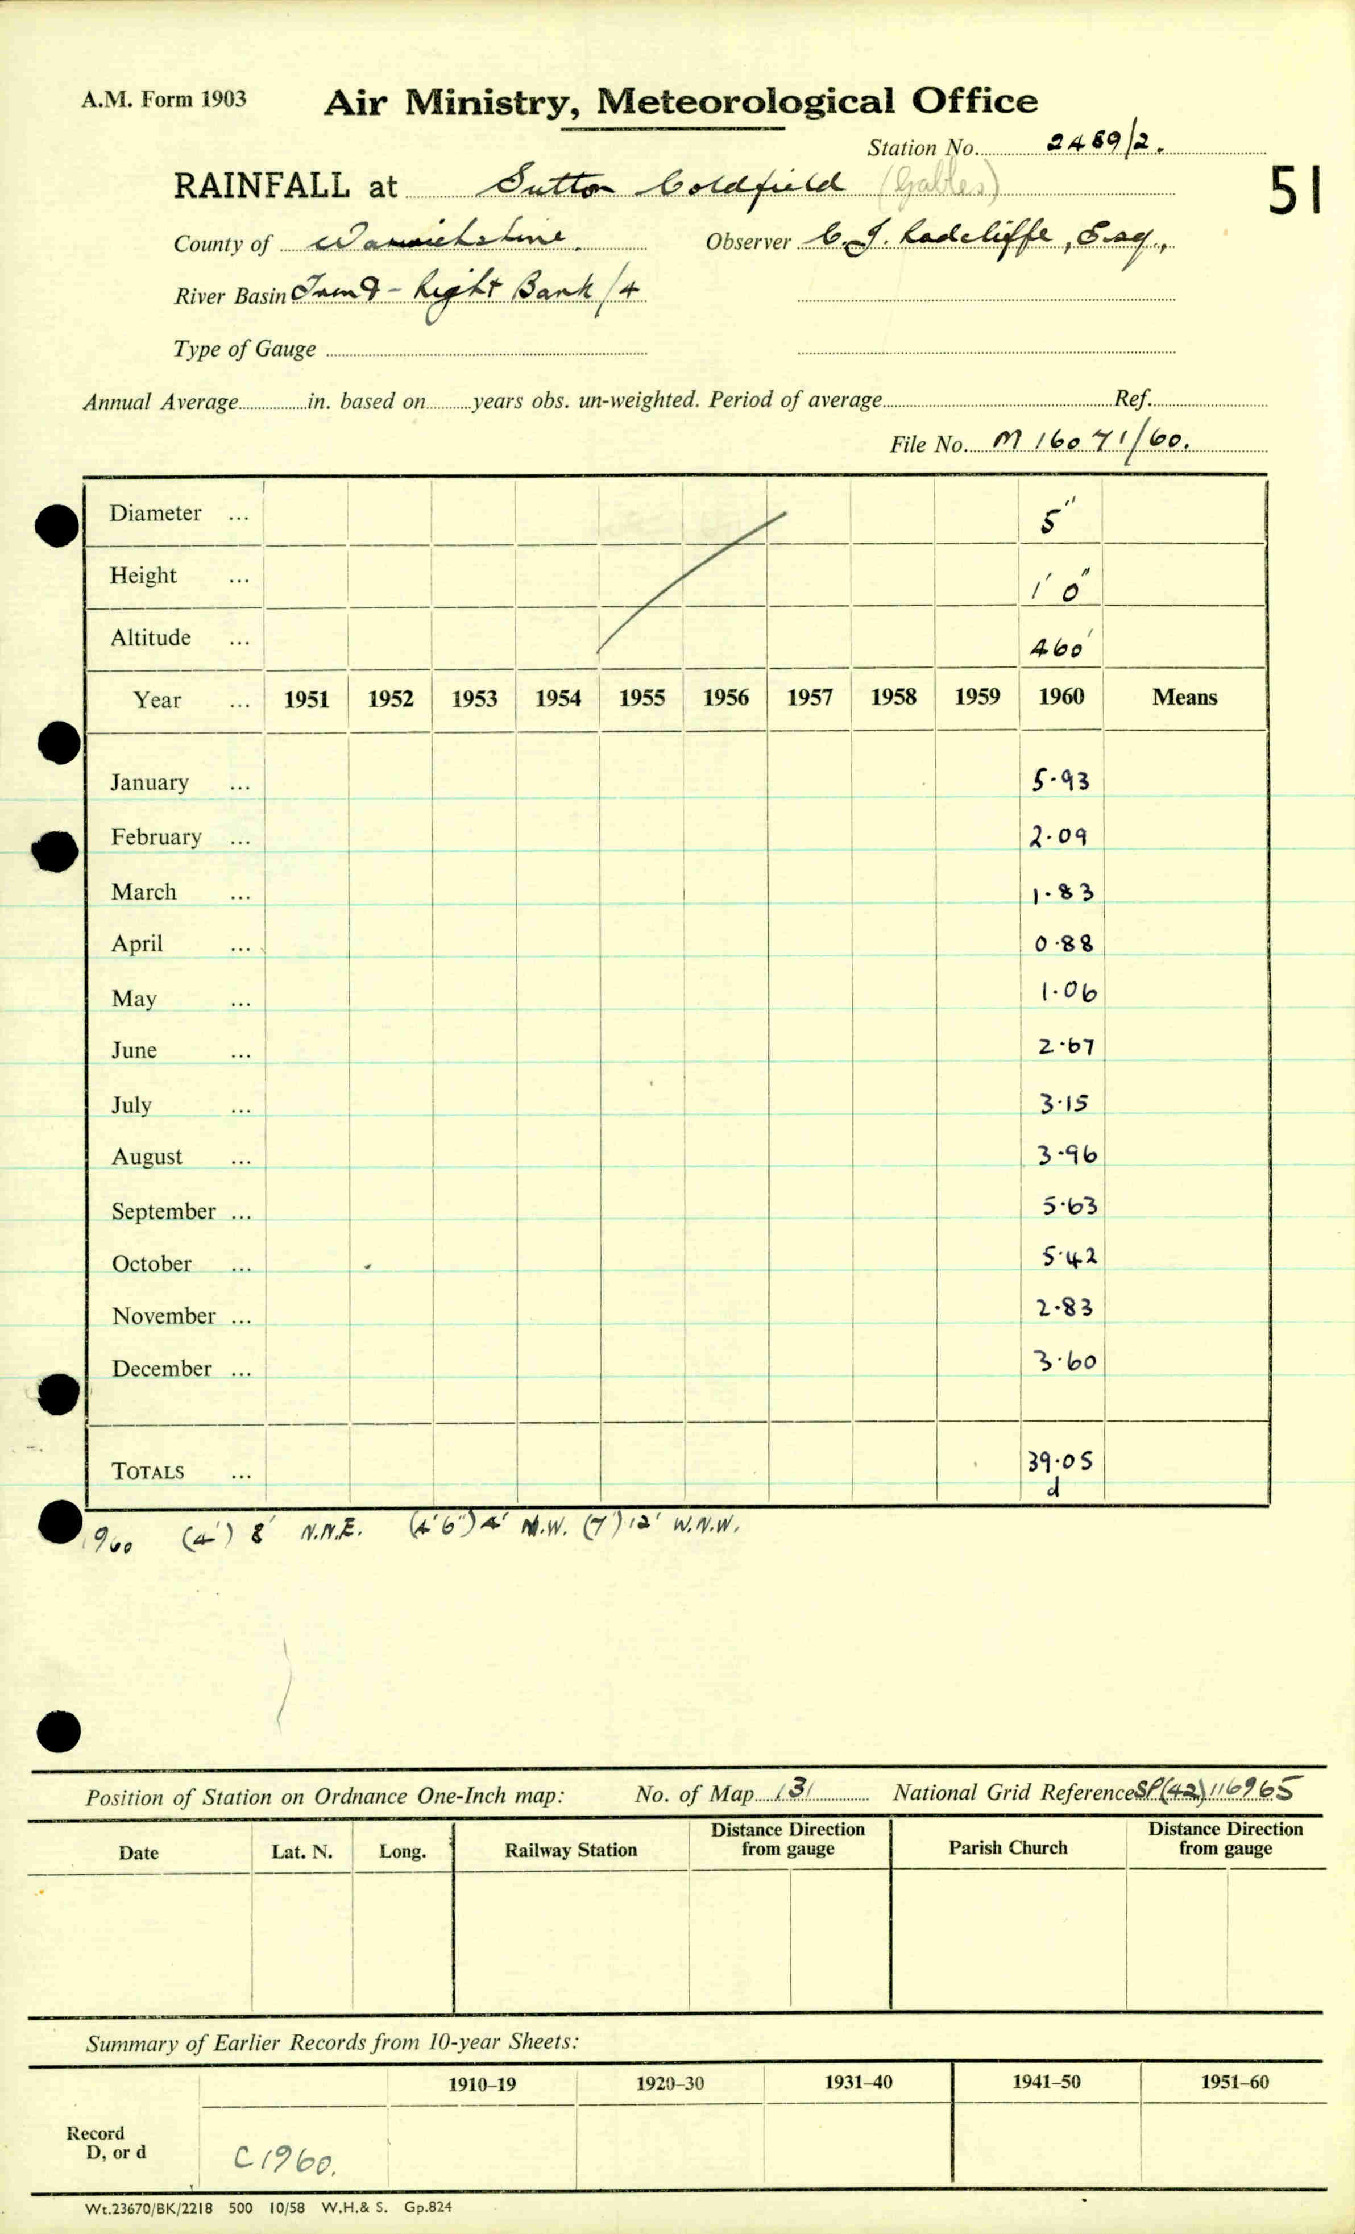 A.M. Form 1903
Air Ministry, Meteorological Office
Station No. 2489/2.
51
RAINFALL at Sutton Coldfield (Gables)
County of Warwickshire. Observer C. J. Radcliffe, Esq.,
River Basin Trent - Right Bank/4
Type of Gauge
Annual Average in. based on years obs. un-weighted. Period of average Ref.
File No. M 16071/60.
Diameter ... 5"
Height ... 1' 0"
Altitude ... 460'
Year ... 1951 1952 1953 1954 1955 1956 1957 1958 1959 1960 Means
January ... 5·93
February ... 2·09
March ... 1·83
April ... 0·88
May ... 1·06
June ... 2·67
July ... 3·15
August ... 3·96
September ... 5·63
October ... 5·42
November ... 2·83
December ... 3·60
TOTALS ... 39·05
d
1960 (4') 8' N.N.E. (4'6") 4' N.W. (7') 12' W.N.W.
Position of Station on Ordnance One-Inch map: No. of Map 131 National Grid Reference SP(42)116965
Date Lat. N. Long. Railway Station Distance Direction from gauge Parish Church Distance Direction from gauge
Summary of Earlier Records from 10-year Sheets:
1910–19 1920–30 1931–40 1941–50 1951–60
Record
D, or d C1960.
Wt.23670/BK/2218 500 10/58 W.H.& S. Gp.824